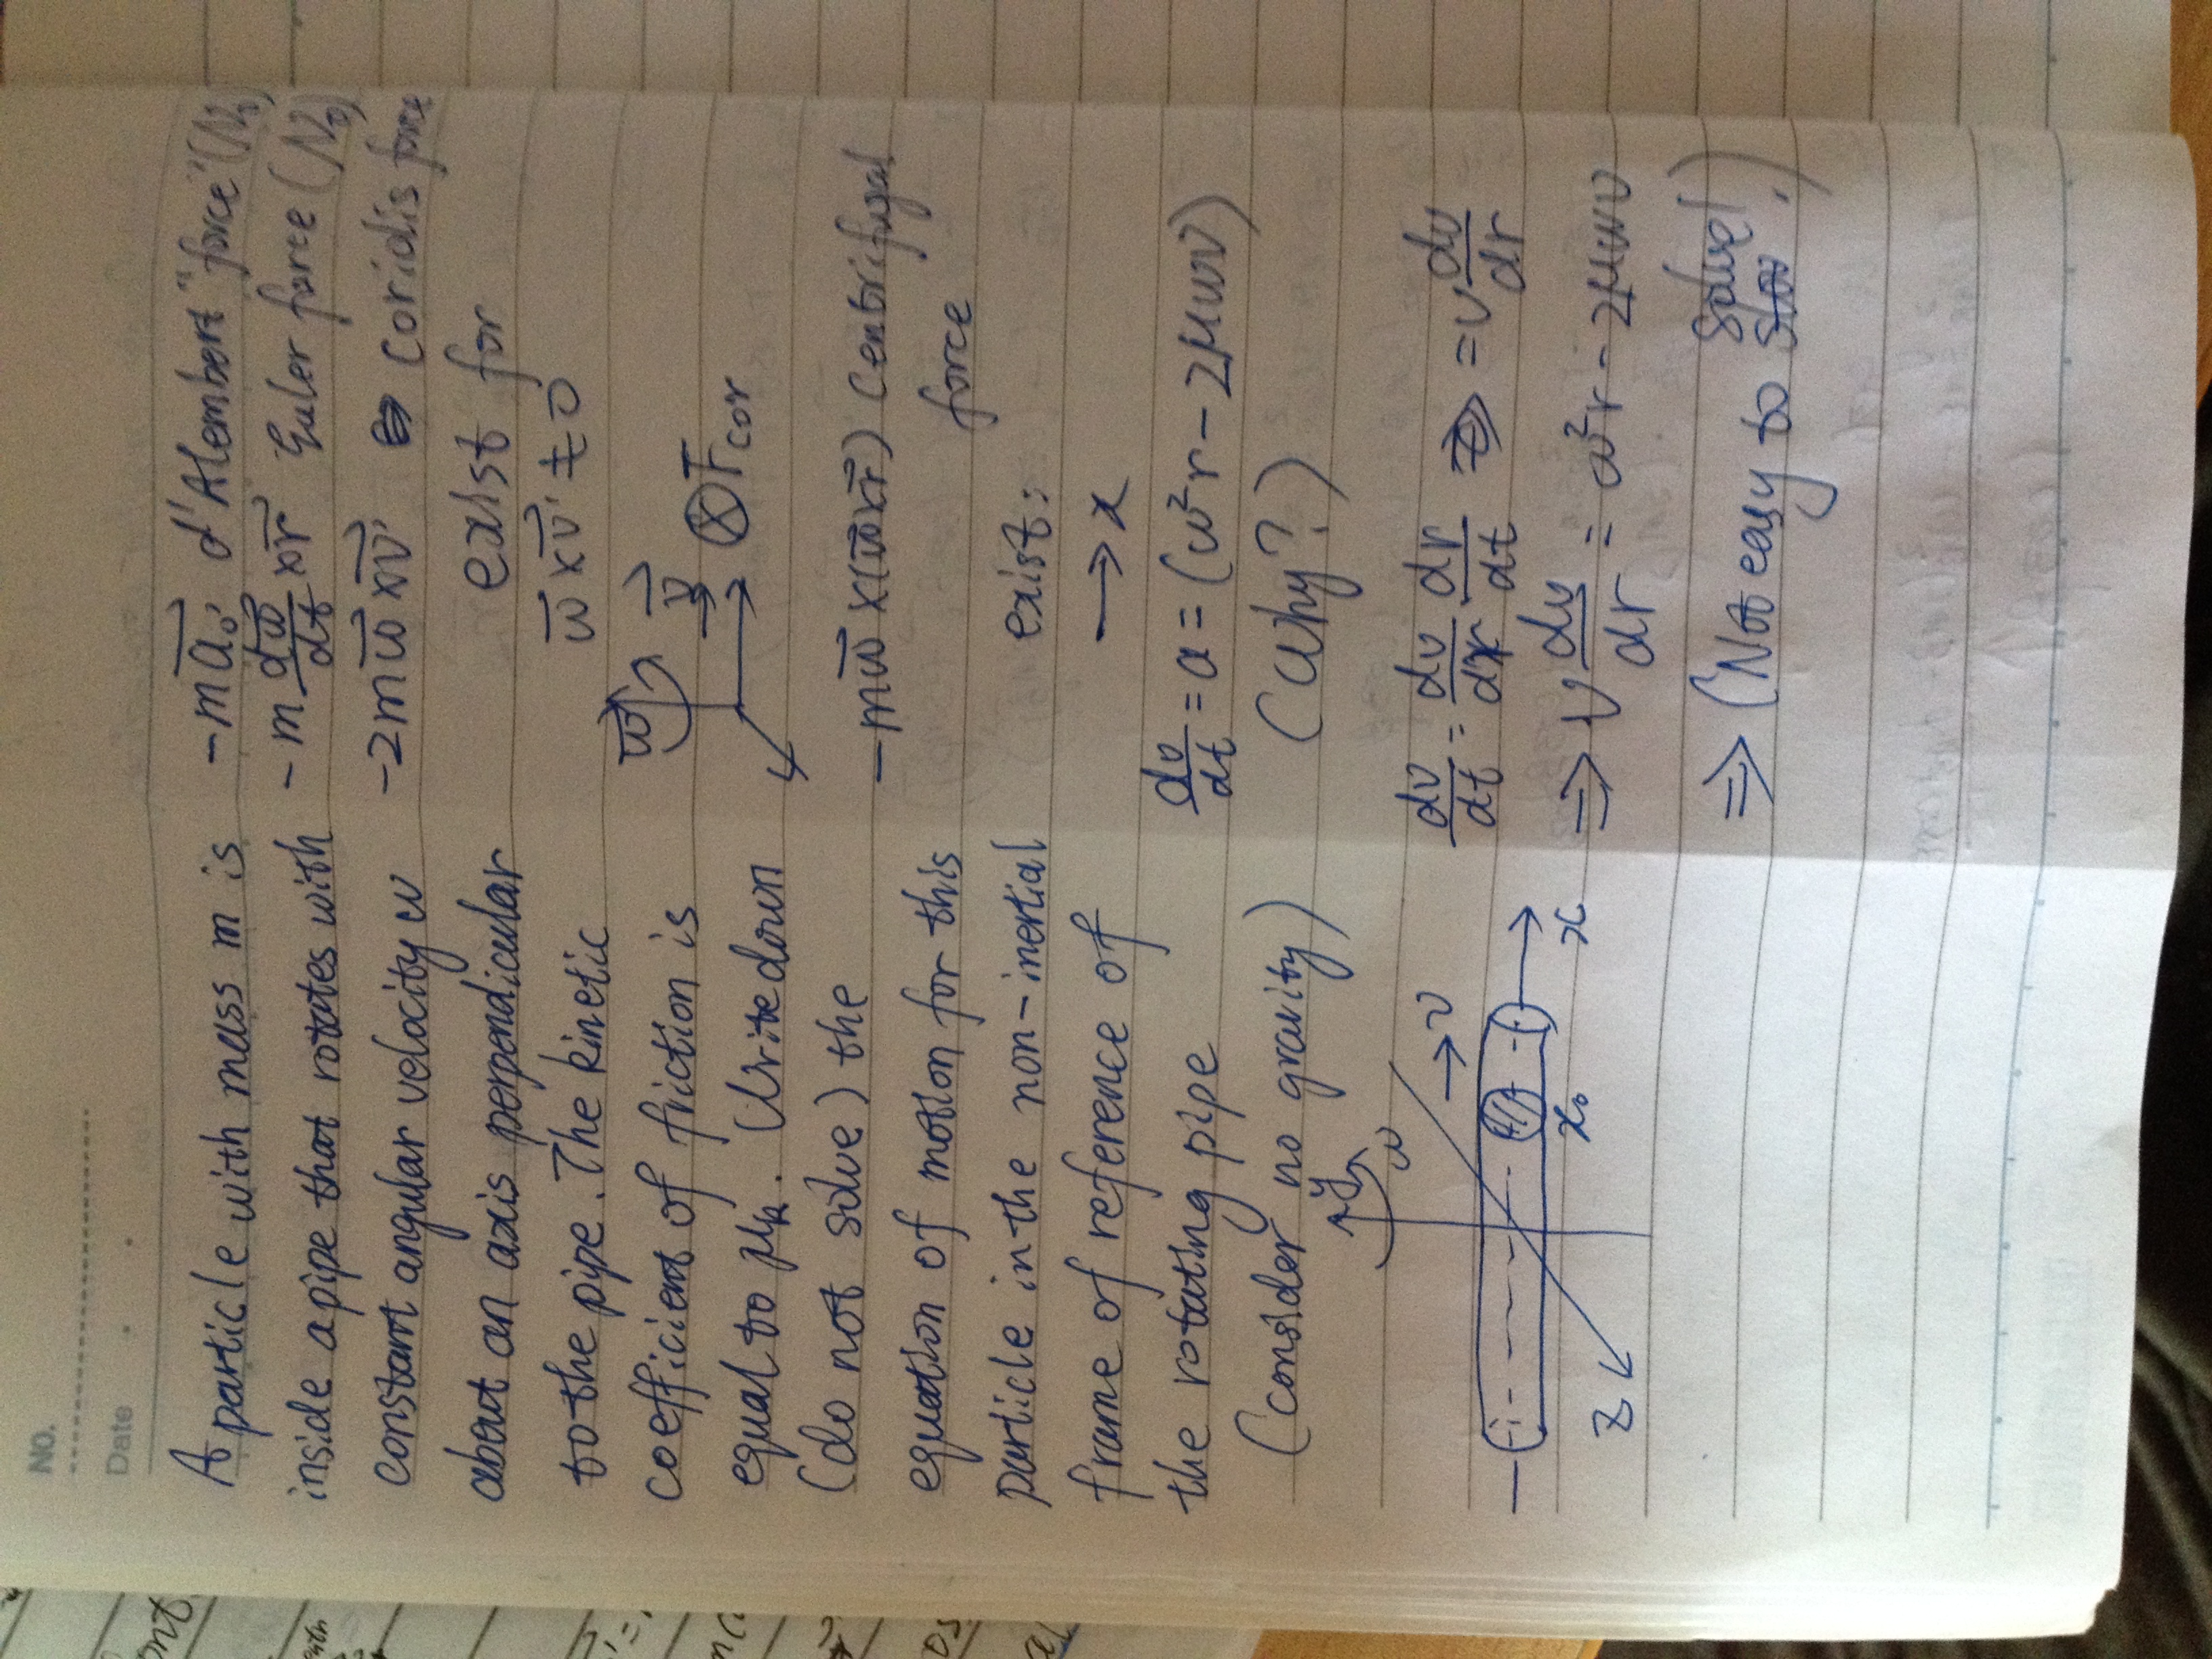 NO.
Date
A particle with mass m is
inside a pipe that rotates with
constant angular velocity ω
about an axis perpendicular
to the pipe. The kinetic
coefficient of friction is
equal to μk. Write down
(do not solve) the
equation of motion for this
particle in the non-inertial
frame of reference of
the rotating pipe
(consider no gravity)
y
ω
→ v
x₀
x
z
-m a⃗₀' d'Alembert "force" (No)
-m dω⃗/dt × r⃗ Euler force (No)
-2m ω⃗ × v⃗' coridis force
exist for
ω⃗ × v⃗' ≠ 0
ω⃗
v⃗
⊗ Fcor
-m ω⃗ × (ω⃗ × r⃗) Centrifugal
force
exist:
→ x
dv/dt = a = (ω²r - 2μωv)
(Why?)
dv/dt = dv/dr dr/dt = v dv/dr
⇒ v dv/dr = ω²r - 2μωv
⇒ (Not easy to solve!)